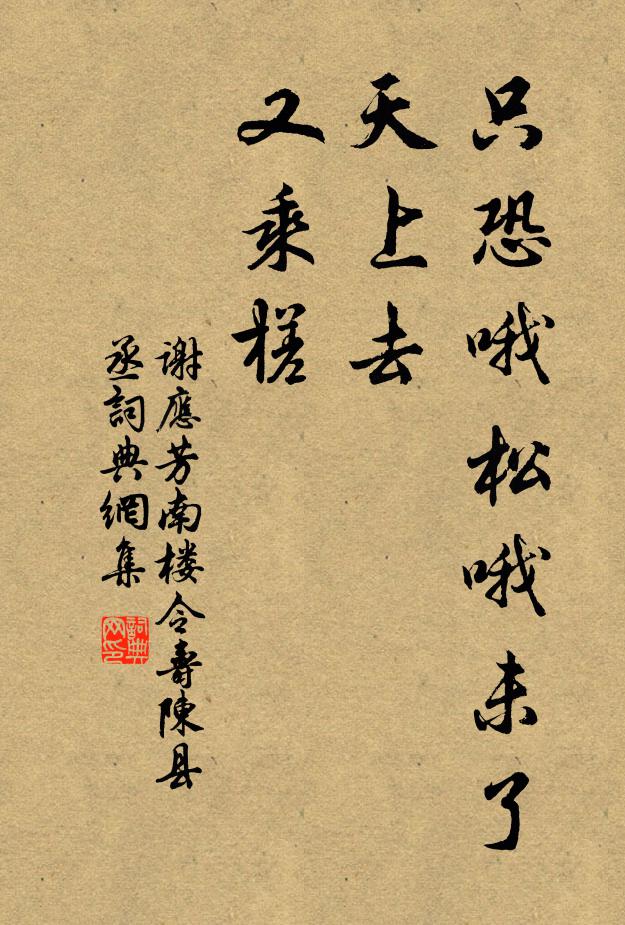 只恐哦松哦未了
天上去
又乘槎
謝應芳南楼令壽陳县
丞詞典網集
詞典
网印